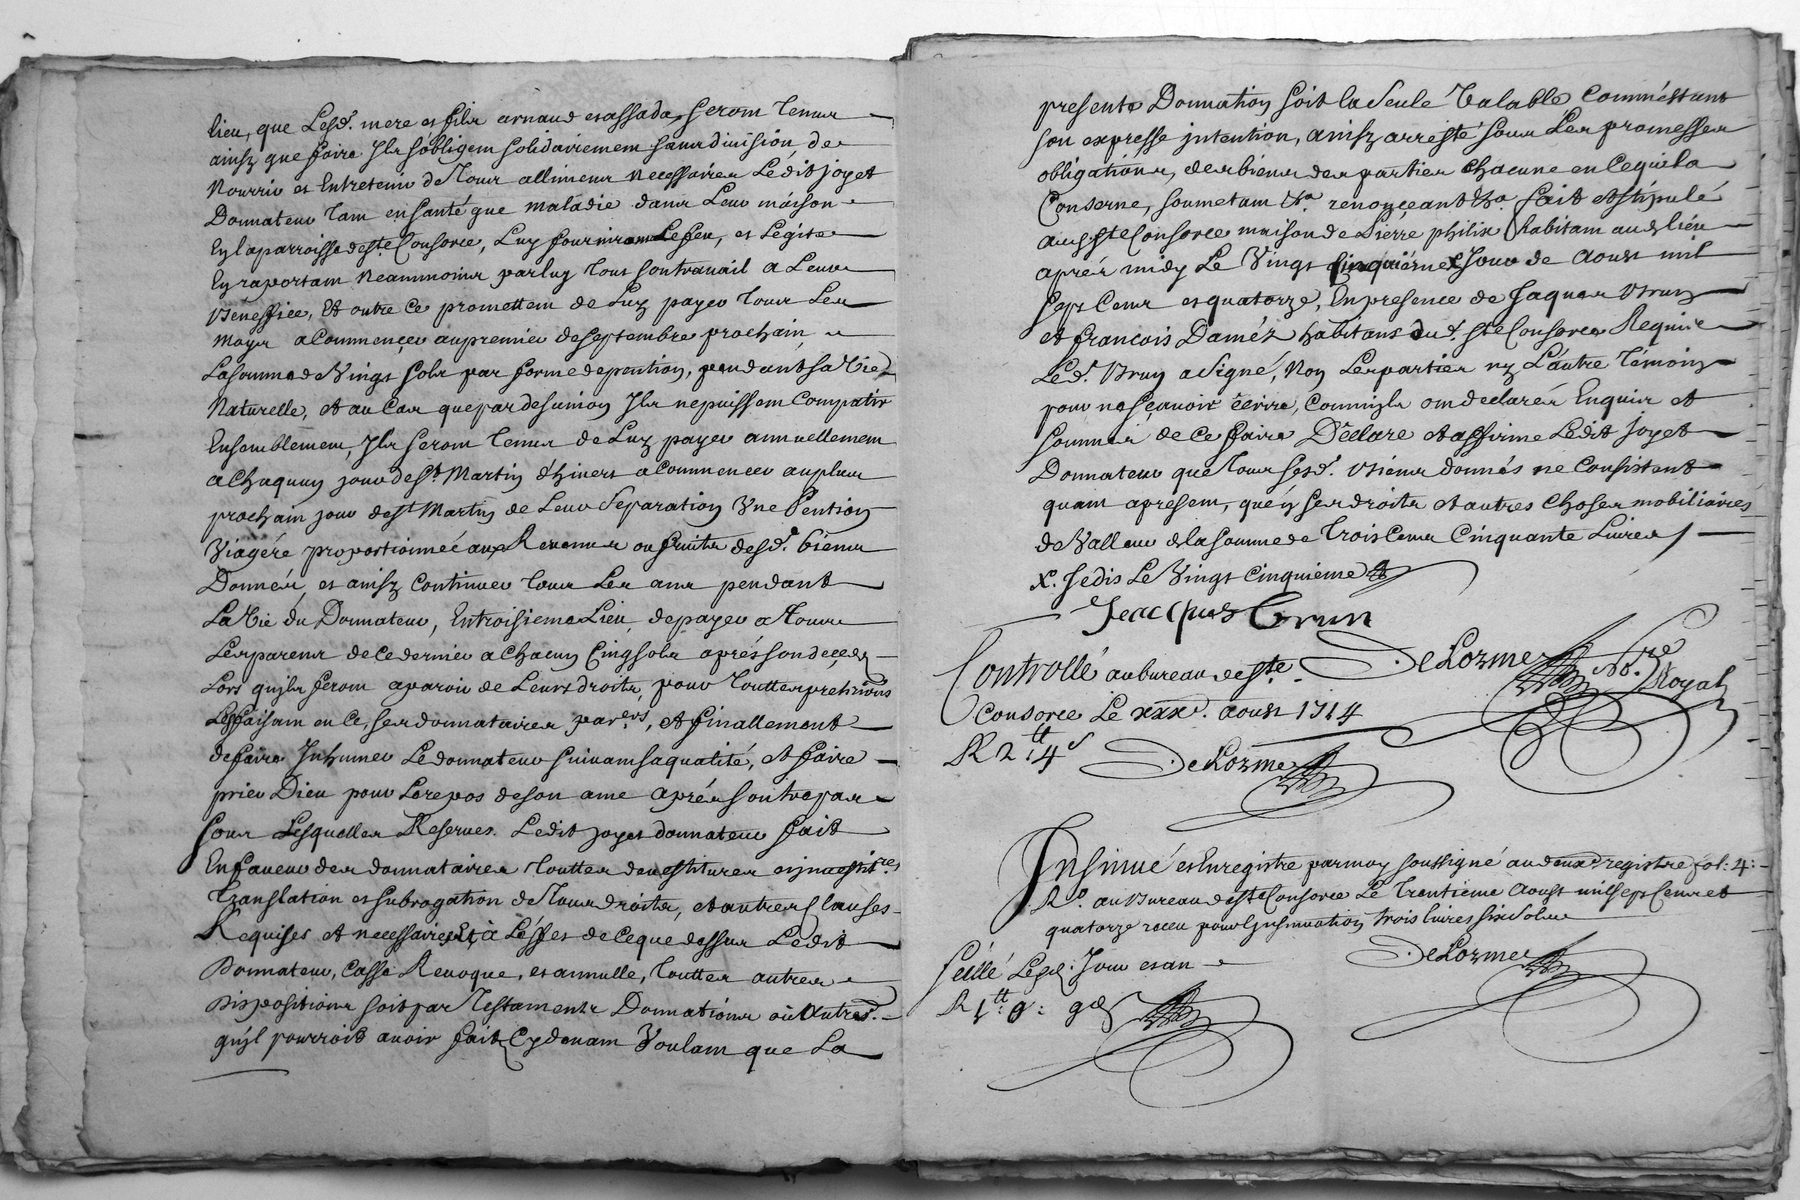 lieu, que Lesd. mere et fils arnaud et assada seront tenus
ainsy que foire Ils sóbligent solidairement sans diuision, de
Nourrir et Entretenir de Tous allimens Necessaires Ledit joyet
Donnateur tant en santé que maladie dans Leur máison
En laparroisse de ste Consorce, Luy fourniront Lefeu, et Légite
En raportant Neanmoins par luy tous sontrauail a Leur
Beneffice, Et outre Ce promettent de Luy payer tous Les
Moys a Commençer au premier de septembre prochain,
Lasomme de Vingt sols par forme de pention, pendant sa Vie
Naturelle, et au Cas que par desunion Ils ne puissent Compatir
Ensemblement, Ils seront tenus de Luy payer annuellement
a Chaquun jour de st Martin d'hiuert a Commencer au plus
prochain jour de st Martin de Leur Separation Vne Pention
Viagére proportionnée aux Reuenus ou fruits desd. biens
Donnés, et ainsy Continuer tous Les ans pendant
La Vie du Donnateur, En troisieme Lieu, de payer a Tous
Les parens de Ce dernier a Chacun Cinq sols aprés son deçeds
Lors qu'ils feront aparoir de Leurs droits, pour touttes pretentions
Les faisant en Ce, ses donnataires par.ers, et finallement
de faire Inhumer Le donnateur suiuant sa qualité, et faire
prier Dieu pour Le repos de son ame aprés son trepas
sous Lesquelles Reserues. Ledit joyet donnateur fait
En faueur des donnataires touttes deuestitures inuestit.res
Translation et subrogation de Tous droits, et autres Clauses
Requises et necessaires Et à L'éffet de Ce que dessus Ledit
Donnateur, Casse Reuoque, et annulle, touttes autres
Dispositions soit par Testaments Donnations où Autres.
qu'il pourroit auoir fait Cydeuant Voulant que La
presente Donnation soit la seule Valable Comme'stant
son expresse intention, ainsy arresté sous Les promesses
obligations, des biens des parties Chacune en Ce qui la
Conserne, soumetant &a. renonçeant &a. fait et stipulé
aud. ste Consorce maison de Pierre philix habitant aud. lieu
aprés midy Le Vingt Cinquiéme x Jour de Aoust mil
Sept Cent et quatorze, En presence de Jaques Brun
et françois Daméz habitans dud. ste Consorce Requis
Led. Brun a Signé, Non Les parties ny L'autre témoin
pour ne sçauoir éçrire, Comm'ils ont declarés Enquis et
sommés de Ce faire Déclare et affirme Ledit joyet
Donnateur que Tous sesd. biens donnés ne Consistent
quant apresent, qu'en ses droits et autres Choses mobiliaires
de Valleur de la somme de trois Cent Cinquante Liures
x. Jedis Le Vingt Cinquieme
Jeacques Brun
DeLorme No.re Royal
Controllé au bureau de ste.
Consorce Le xxx. aoust 1714
R 2 tt 4 s
DeLorme
Insinué et Enregistré par moy soussigné au deux.e registre fol. 4:
Ro. au Bureau de ste Consorce Le trentieme Aoust mil sept Cent et
quatorze receu pour Linsinuation trois Liures six Sols
DeLorme
Sellé Lesd. Jour et an
R 1 tt: 0: 9d